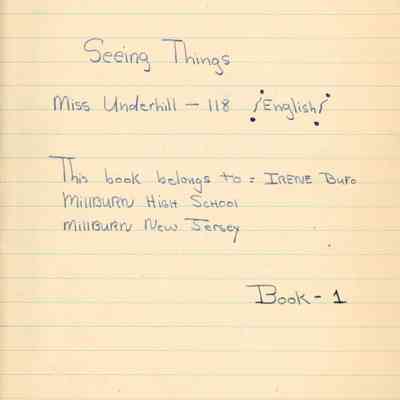 Seeing Things
Miss Underhill - 118 /English/
This book belongs to = IRENE Bufo
MillBURN HIGH SCHOOL
MillBURN NEW JERSEY
Book - 1